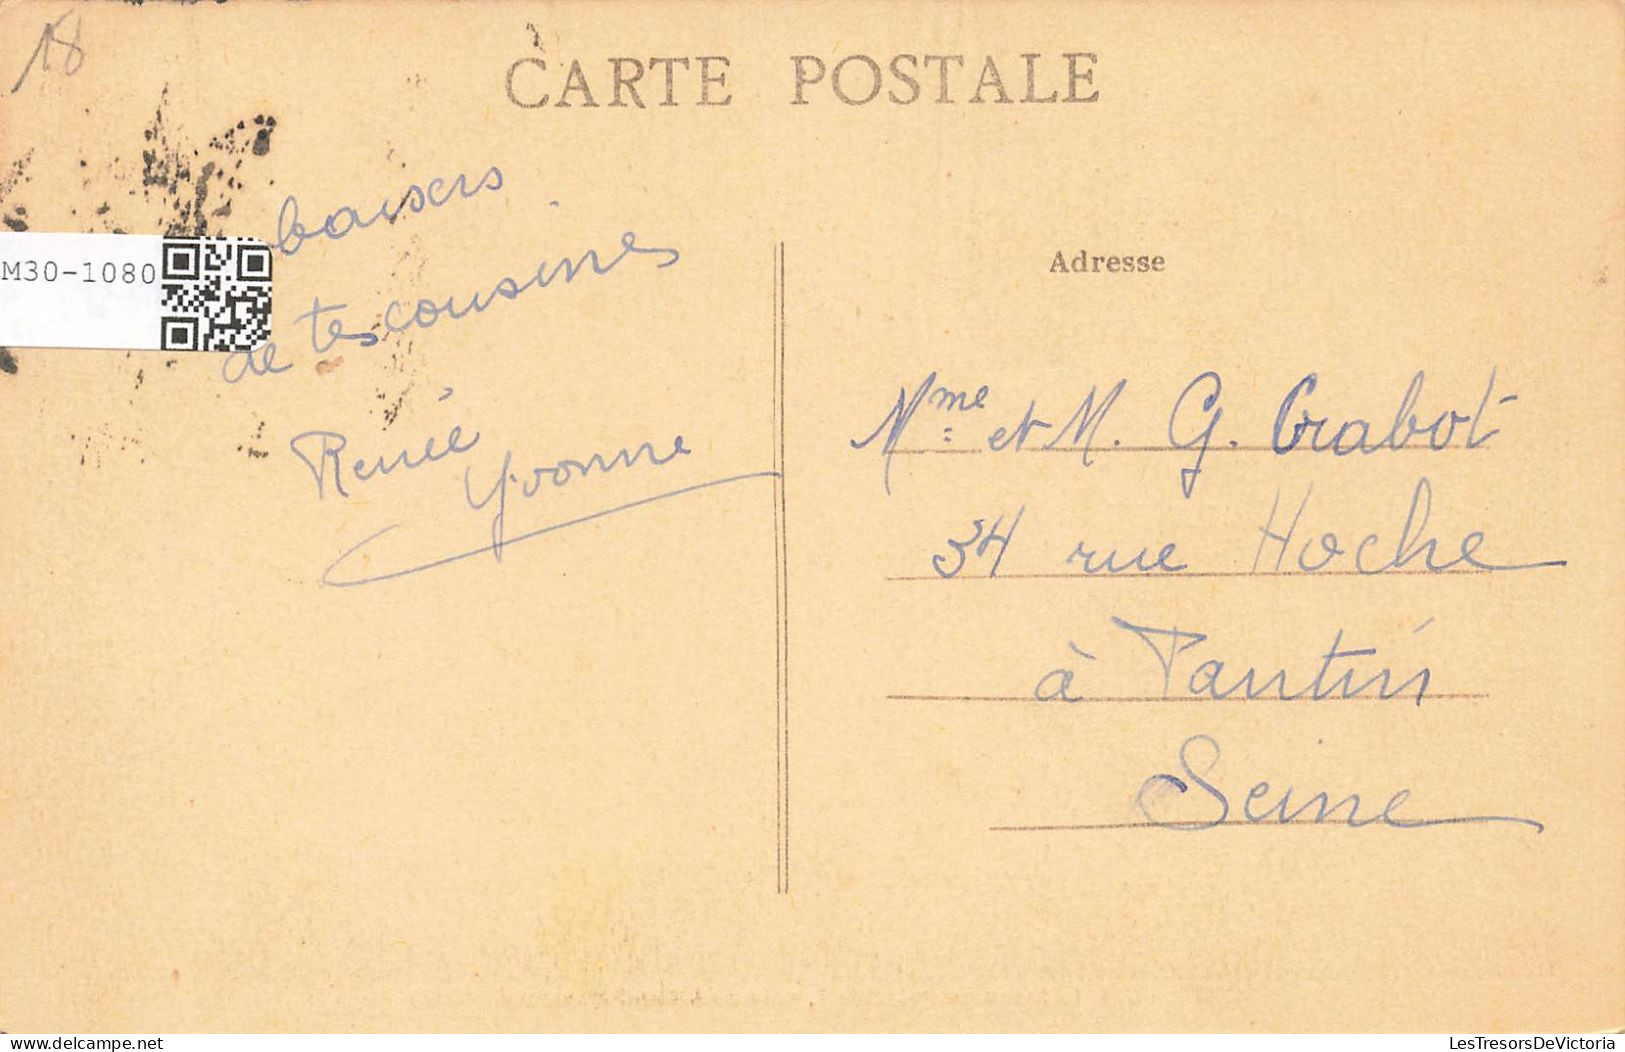 18
CARTE POSTALE
M30-1080
baisers
de tes cousines
Renée
Yvonne
Adresse
Mme et M. G. Crabot
34 rue Hoche
à Pantin
Seine
delcampe.net
LesTresorsDeVictoria